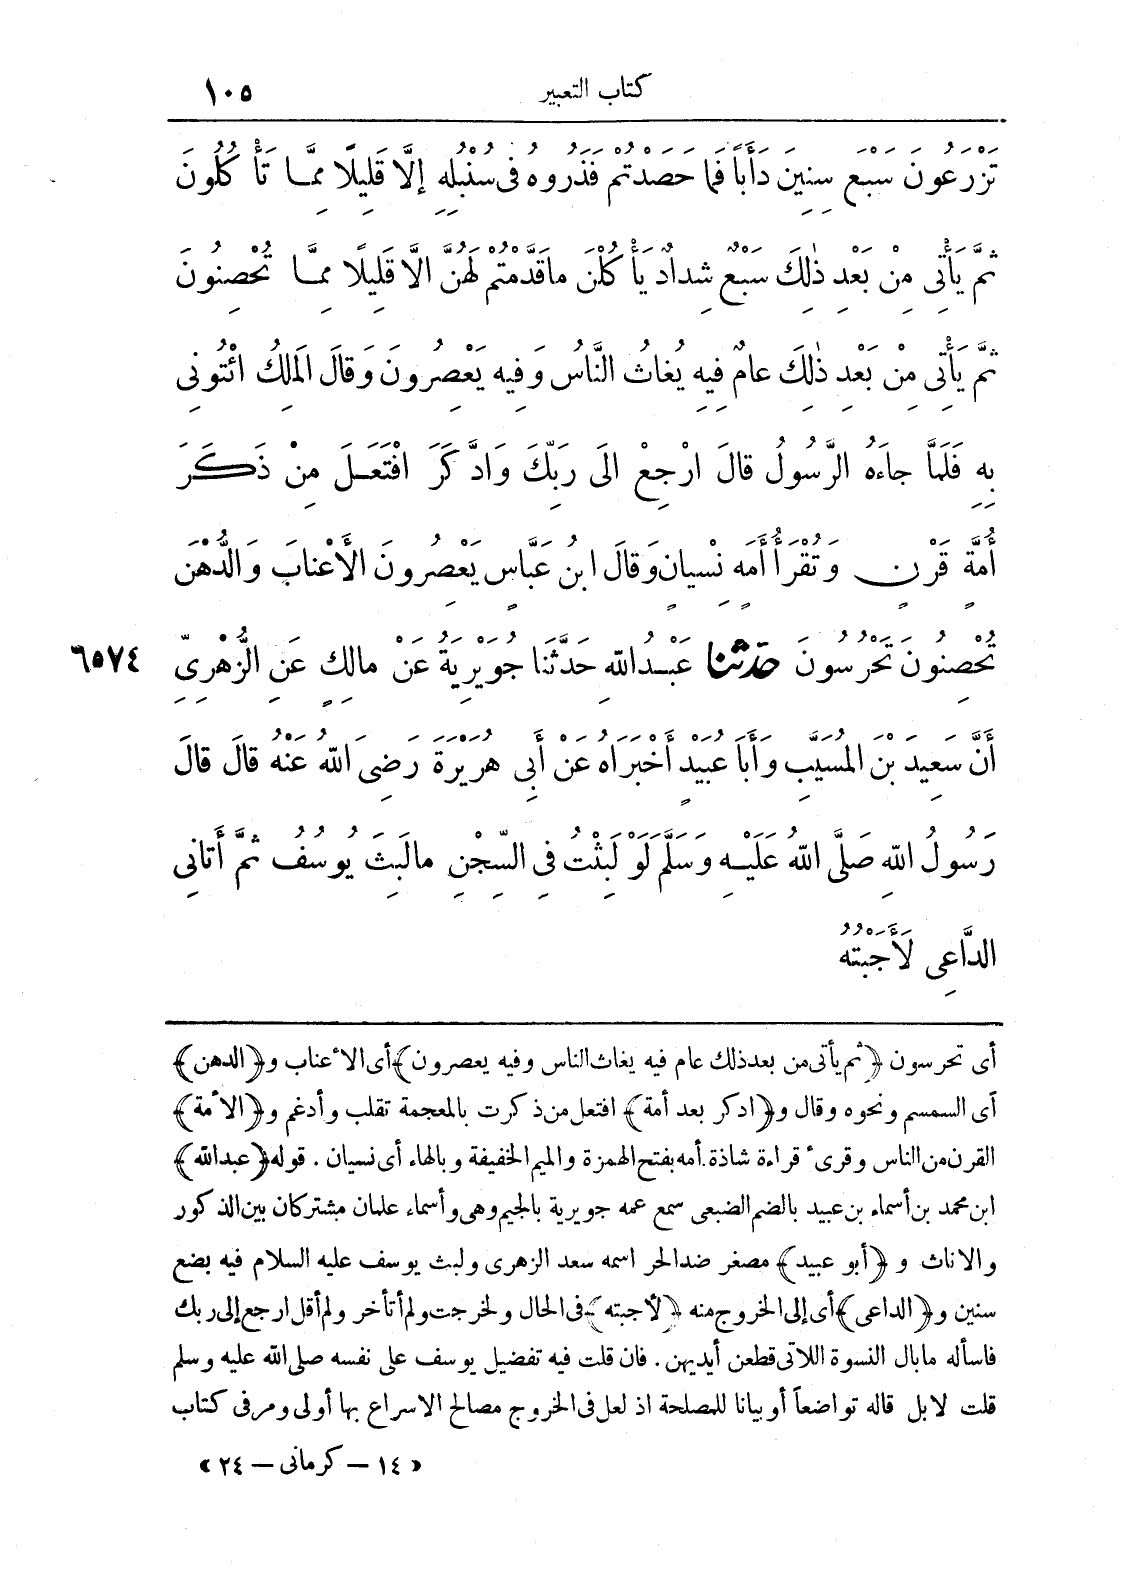 كتاب التعبير ١٠٥
تَزْرَعُونَ سَبْعَ سِنِينَ دَأَباً فَمَا حَصَدْتُمْ فَذَرُوهُ فِى سُنْبُلِهِ إِلَّا قَلِيلًا مِمَّا تَأْكُلُونَ
ثُمَّ يَأْتِى مِنْ بَعْدِ ذٰلِكَ سَبْعٌ شِدادٌ يَأْكُلْنَ ماقَدَّمْتُمْ لَهُنَّ الَّا قَلِيلًا مِمَّا تُحْصِنُونَ
ثُمَّ يَأْتِى مِنْ بَعْدِ ذٰلِكَ عامٌ فِيهِ يُغاثُ النَّاسُ وَفِيهِ يَعْصِرُونَ وَقالَ الْمَلِكُ ائْتُونِى
بِهِ فَلَمَّا جاءَهُ الرَّسُولُ قالَ ارْجِعْ الَى رَبِّكَ وَادَّكَرَ افْتَعَلَ مِنْ ذَكَرَ
أُمَّةٍ قَرْنٍ وَتُقْرَأُ أَمَهٍ نِسْيانٍ وَقالَ ابنُ عَبَّاسٍ يَعْصِرُونَ الْأَعْنابَ وَالدُّهْنَ
تُحْصِنُونَ تَحْرُسُونَ حَدَّثَنَا عَبْدُاللهِ حَدَّثَنا جُوَيْرِيَةُ عَنْ مالِكٍ عَنِ الزُّهْرِىِّ ٦٥٧٤
أَنَّ سَعِيدَ بْنَ الْمُسَيَّبِ وَأَبَا عُبَيْدٍ أَخْبَرَاهُ عَنْ أَبِى هُرَيْرَةَ رَضِىَ اللهُ عَنْهُ قالَ قالَ
رَسُولُ اللهِ صَلَّى اللهُ عَلَيْهِ وَسَلَّمَ لَوْ لَبِثْتُ فِى السِّجْنِ مالَبِثَ يُوسُفُ ثُمَّ أَتانِى
الدَّاعِى لَأَجَبْتُهُ
أى تحرسون ﴿ثم يأتى من بعد ذلك عام فيه يغاث الناس وفيه يعصرون﴾ أى الأعناب و﴿الدهن﴾
أى السمسم ونحوه وقال و﴿ادكر بعد أمة﴾ افتعل من ذكرت بالمعجمة تقلب وأدغم و﴿الأمة﴾
القرن من الناس وقرىء قراءة شاذة. أمه بفتح الهمزة والميم الخفيفة وبالهاء أى نسيان. قوله ﴿عبدالله﴾
ابن محمد بن أسماء بن عبيد بالضم الضبعى سمع عمه جويرية بالجيم وهى وأسماء علمان مشتركان بين الذكور
والاناث و ﴿أبو عبيد﴾ مصغر ضدالحر اسمه سعد الزهرى ولبث يوسف عليه السلام فيه بضع
سنين و﴿الداعى﴾ أى إلى الخروج منه ﴿لأجبته﴾ فى الحال ولخرجت ولم أتأخر ولم أقل ارجع إلى ربك
فاسأله مابال النسوة اللاتى قطعن أيديهن. فان قلت فيه تفضيل يوسف على نفسه صلى الله عليه وسلم
قلت لا بل قاله تواضعاً أو بيانا للمصلحة اذ لعل فى الخروج مصالح الاسراع بها أولى ومر فى كتاب
« ١٤ – كرمانى – ٢٤ »